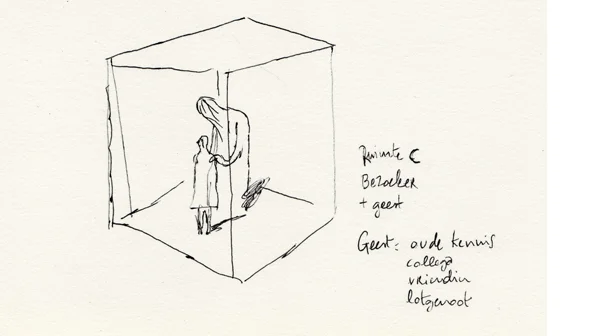 Ruimte C
Bezoeker
+ geest
Geest: oude kennis
collega
vriendin
lotgenoot